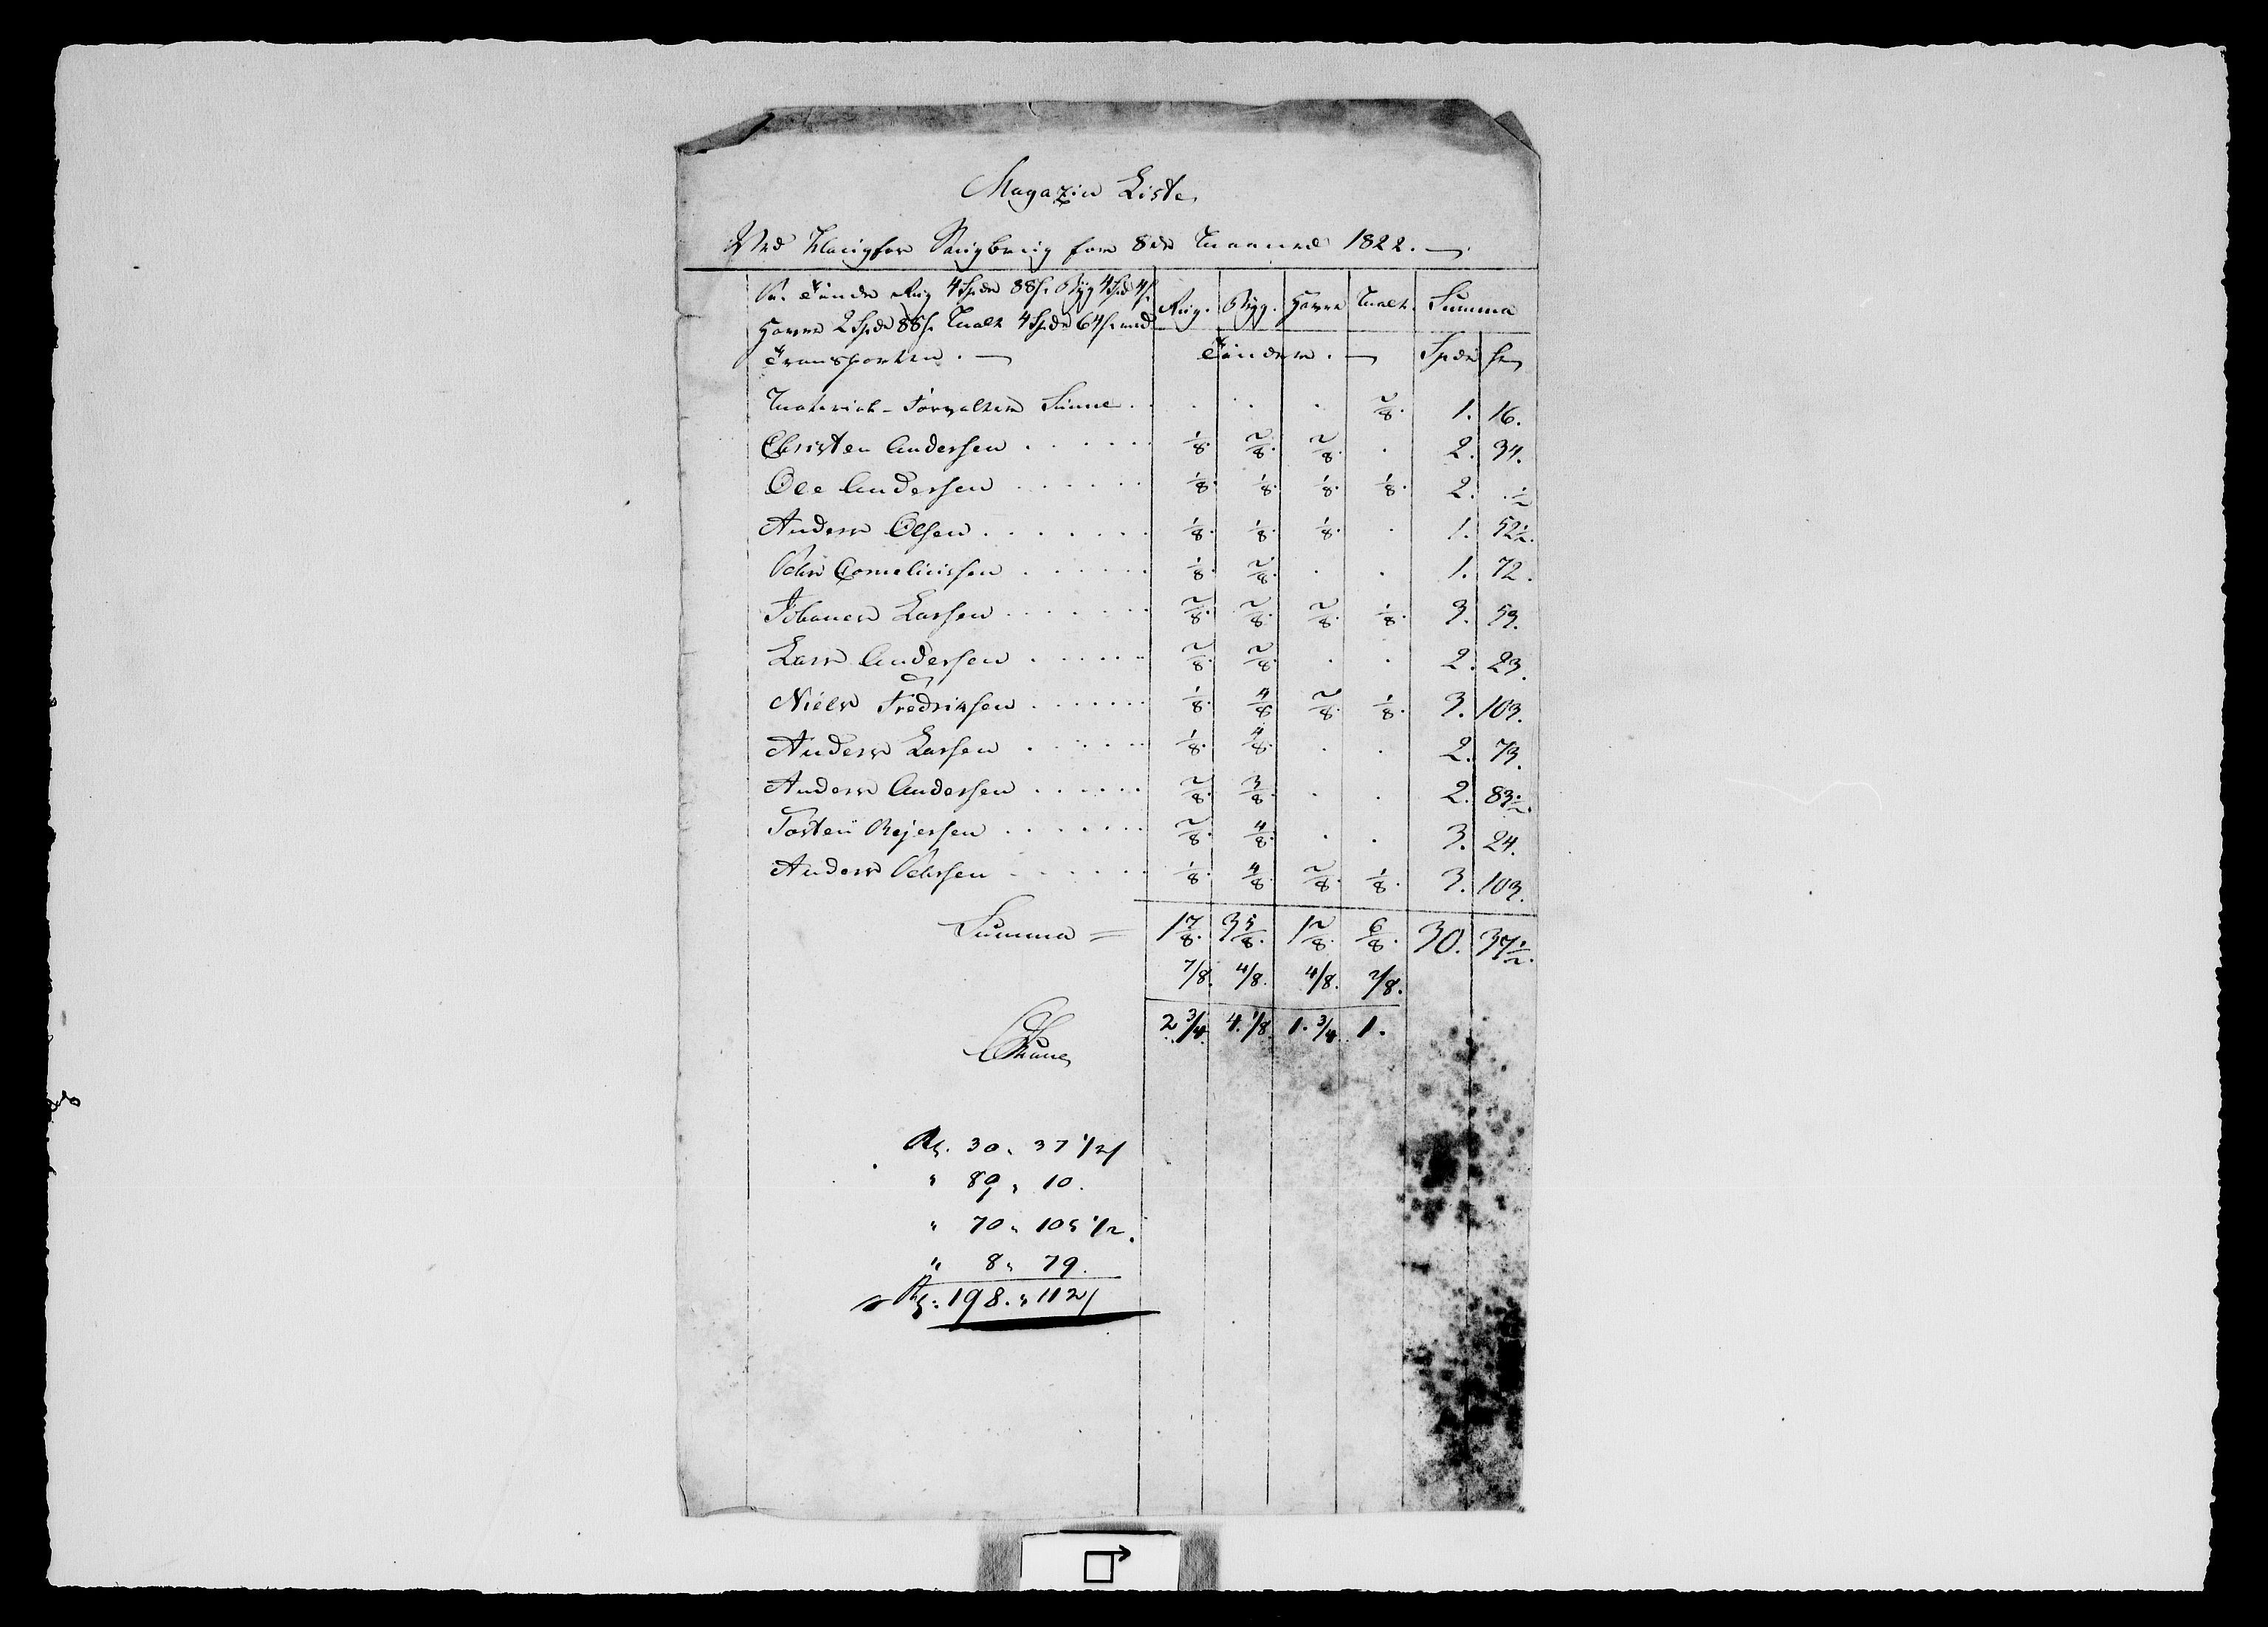 Magazin Liste
Ved Klingfos Saugbrug for 8de Maaned 1822.
Pr. Tønde Rug 4 Spdr 88 s. Byg 4 Spd 4 s
Havre 2 Spdr 88 s. Malt 4 Spdr 64 s. med
Transporten.
Rug. Byg. Havre Malt. Summa
Tønder. Spdr s
Material-Forvalter Sinne . . . . 2/8. 1. 16.
Christen Andersen . . . . . . 1/8 2/8. 2/8. . 2. 34.
Ole Andersen . . . . . . 1/8. 1/8. 1/8. 1/8. 2. . 1/2
Anders Olsen . . . . . . . 1/8. 1/8. 1/8. . 1. 52 1/2.
Peder Corneliussen . . . . . . 1/8 2/8. . . 1. 72.
Johannes Larsen . . . . . . . 2/8. 2/8. 2/8. 1/8. 3. 59.
Lars Andersen . . . . . . 2/8. 2/8. . . 2. 23.
Niels Fredriksen . . . . . . . 1/8. 4/8 2/8. 1/8. 3. 103.
Anders Larsen . . . . . . 1/8. 4/8. . . 2. 73.
Anders Andersen . . . . . . 2/8. 3/8. . . 2. 83 1/2.
Torsten Rejersen . . . . . . . 2/8. 4/8. . . 3. 24.
Anders Pedersen . . . . . . 1/8. 4/8. 2/8. 1/8. 3. 103.
Summa = 1 7/8. 3 5/8. 1 2/8. 6/8. 30. 37 1/2.
7/8. 4/8. 4/8. 2/8.
2 3/4. 4. 1/8. 1. 3/4. 1.
30 „ 37 1/2
„ 89 „ 10.
„ 70 „ 105 1/2.
„ 8 „ 79.
198. „ 112